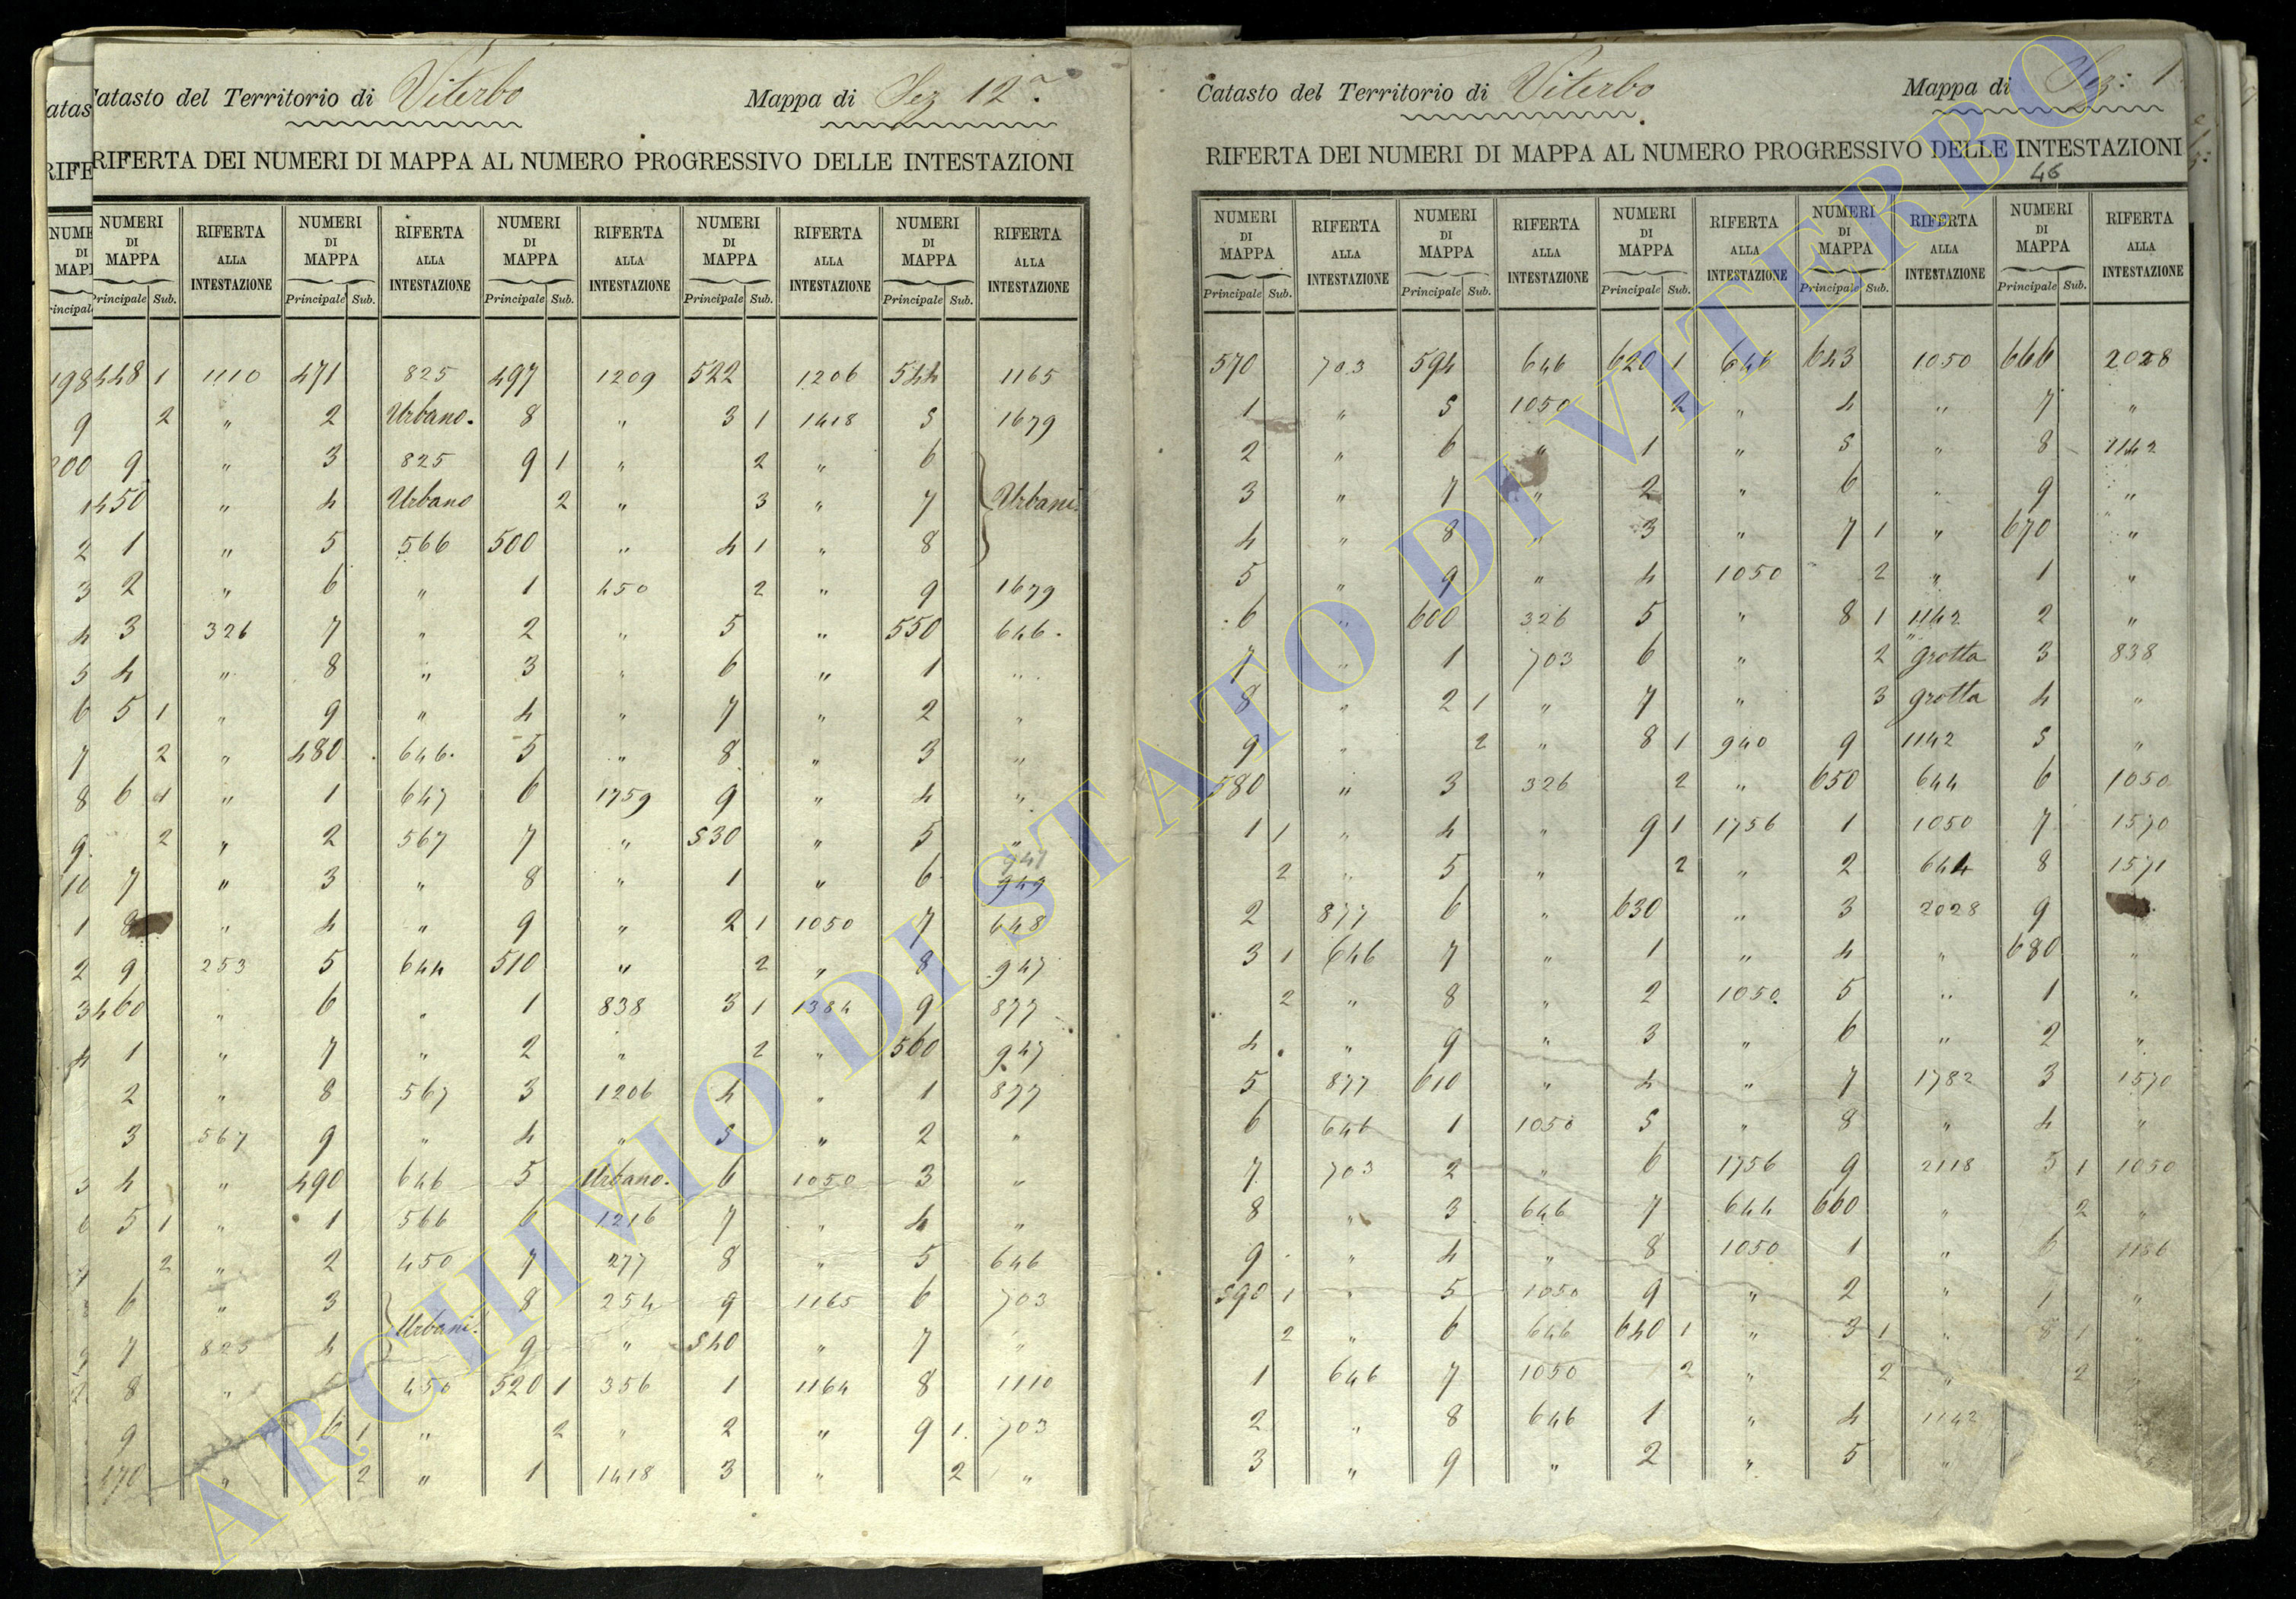 Catasto del Territorio di Viterbo Mappa di Sez 12ª.
RIFERTA DEI NUMERI DI MAPPA AL NUMERO PROGRESSIVO DELLE INTESTAZIONI
NUMERI DI MAPPA RIFERTA ALLA INTESTAZIONE NUMERI DI MAPPA RIFERTA ALLA INTESTAZIONE NUMERI DI MAPPA RIFERTA ALLA INTESTAZIONE NUMERI DI MAPPA RIFERTA ALLA INTESTAZIONE NUMERI DI MAPPA RIFERTA ALLA INTESTAZIONE
Principale Sub. Principale Sub. Principale Sub. Principale Sub. Principale Sub.
448 1 1110 471 825 497 1209 522 1206 544 1165
2 " 2 Urbano. 8 " 3 1 1418 5 1679
9 " 3 825 9 1 " 2 " 6
450 " 4 Urbano 2 " 3 " 7 Urbani.
1 " 5 566 500 " 4 1 " 8
2 " 6 " 1 450 2 " 9 1679
3 326 7 " 2 " 5 " 550 646.
4 " 8 " 3 " 6 " 1 "
5 1 " 9 " 4 " 7 " 2 "
2 " 480 646. 5 " 8 " 3 "
6 1 " 1 647 6 1759 9 " 4 "
2 " 2 567 7 " 530 " 5 "
7 " 3 " 8 " 1 " 6 947 949
8 " 4 " 9 " 2 1 1050 7 648
9 253 5 644 510 " 2 " 8 947
460 " 6 " 1 838 3 1 1384 9 877
1 " 7 " 2 " 2 " 560 947
2 " 8 567 3 1206 4 " 1 877
3 567 9 " 4 " 5 " 2 "
4 " 490 646 5 Urbano. 6 1050 3 "
5 1 " 1 566 6 1216 7 " 4 "
2 " 2 450 7 277 8 " 5 646
6 " 3 Urbani. 8 254 9 1165 6 703
7 825 4 9 " 540 " 7 "
8 " 5 450 520 1 356 1 1164 8 1110
9 " 6 1 " 2 " 2 " 9 1. 703
470 " 2 " 1 1418 3 " 2 "
Catasto del Territorio di Viterbo Mappa di Sez: 1
RIFERTA DEI NUMERI DI MAPPA AL NUMERO PROGRESSIVO DELLE INTESTAZIONI
46
NUMERI DI MAPPA RIFERTA ALLA INTESTAZIONE NUMERI DI MAPPA RIFERTA ALLA INTESTAZIONE NUMERI DI MAPPA RIFERTA ALLA INTESTAZIONE NUMERI DI MAPPA RIFERTA ALLA INTESTAZIONE NUMERI DI MAPPA RIFERTA ALLA INTESTAZIONE
Principale Sub. Principale Sub. Principale Sub. Principale Sub. Principale Sub.
570 703 594 646 620 1 646 643 1050 666 2028
1 " 5 1050 2 " 4 " 7 "
2 " 6 " 1 " 5 " 8 1142
3 " 7 " 2 " 6 " 9 "
4 " 8 " 3 " 7 1 " 670 "
5 " 9 " 4 1050 2 " 1 "
6 " 600 326 5 " 8 1 1142 2 "
7 " 1 703 6 " 2 " grotta 3 838
8 " 2 1 " 7 " 3 grotta 4 "
9 " 2 " 8 1 940 9 1142 5 "
580 " 3 326 2 " 650 644 6 1050
1 1 " 4 " 9 1 1756 1 1050 7 1570
2 " 5 " 2 " 2 644 8 1571
2 877 6 " 630 " 3 2028 9
3 1 646 7 " 1 " 4 " 680 "
2 " 8 " 2 1050. 5 " 1 "
4 " 9 " 3 " 6 " 2 "
5 877 610 " 4 " 7 1782 3 1570
6 646 1 1050 5 " 8 " 4 "
7 703 2 " 6 1756 9 2118 5 1 1050
8 " 3 646 7 644 660 " 2 "
9 " 4 " 8 1050 1 " 6 1186
590 1 " 5 1050 9 " 2 " 7 "
2 " 6 646 640 1 " 3 1 " 8 1 "
1 646 7 1050 2 " 2 " 2 "
2 " 8 646 1 " 4 1142
3 " 9 " 2 " 5 "
ARCHIVIO DI STATO DI VITERBO